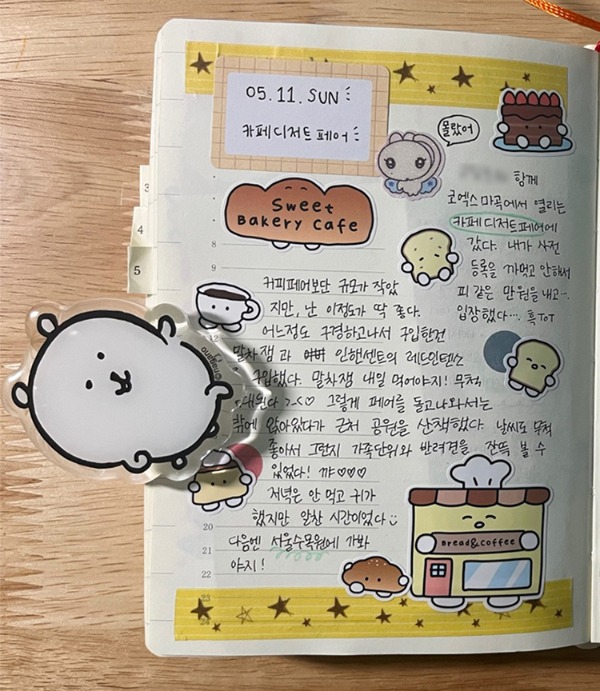 05. 11. SUN
카페디저트 페어
몰랐어
Sweet
Bakery Cafe
함께
코엑스마곡에서 열리는
카페 디저트페어에
갔다. 내가 사전
등록을 까먹고 안해서
피 같은 만원을 내고...
입장했다... 흑ToT
커피페어보단 규모가 작았
지만, 난 이정도가 딱 좋다.
어느정도 구경하고나서 구입한건
말차잼 과 인헨센트의 레드인텐스
구입했다. 말차잼 내일 먹어야지! 무척
기대된다 >.<♡ 그렇게 페어를 돌고나와서는
밖에 앉아있다가 근처 공원을 산책했다. 날씨도 무척
좋아서 그런지 가족단위와 반려견을 잔뜩 볼 수
있었다! 꺄♡♡♡♡
저녁은 안 먹고 귀가
했지만 알찬 시간이었다
다음엔 서울수목원에 가봐
야지!
Bread&Coffee
©nagano
3
4
5
8
9
12
20
21
22
23
24